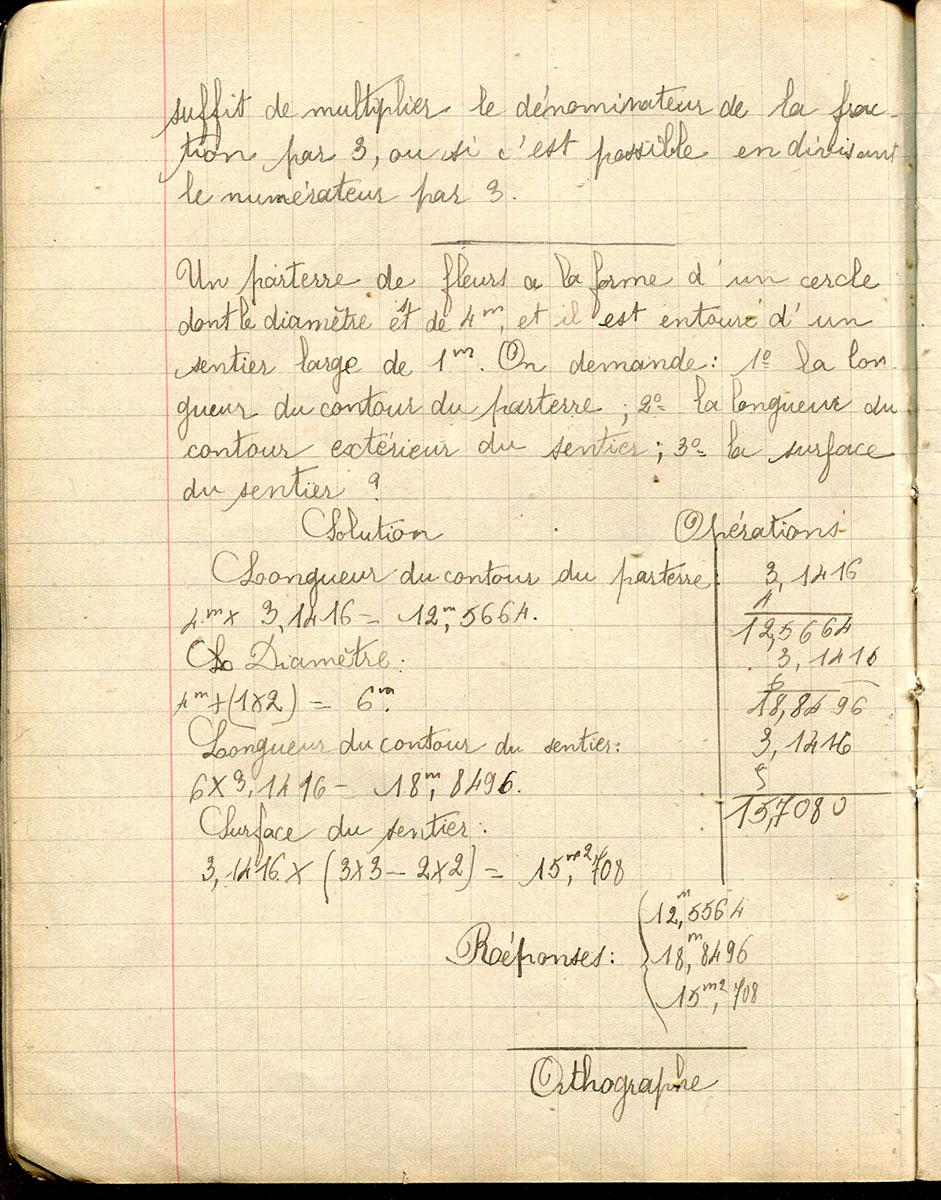 suffit de multiplier le dénominateur de la frac-
tion par 3, ou si c'est possible en divisant
le numérateur par 3.
Un parterre de fleurs a la forme d'un cercle
dont le diamètre est de 4m, et il est entouré d'un
sentier large de 1m. On demande: 1º la lon-
gueur du contour du parterre ; 2º la longueur du
contour extérieur du sentier ; 3º la surface
du sentier ?
Solution
Opérations
Longueur du contour du parterre:
4m x 3,1416 = 12m,5664.
Diamètre:
4m + (1x2) = 6m.
Longueur du contour du sentier:
6 x 3,1416 = 18m,8496.
Surface du sentier:
3,1416 x (3x3 - 2x2) = 15m2,708
3,1416
4
12,5664
3,1416
6
18,8496
3,1416
5
15,7080
Réponses:
12m,5564
18m,8496
15m2,708
Orthographe